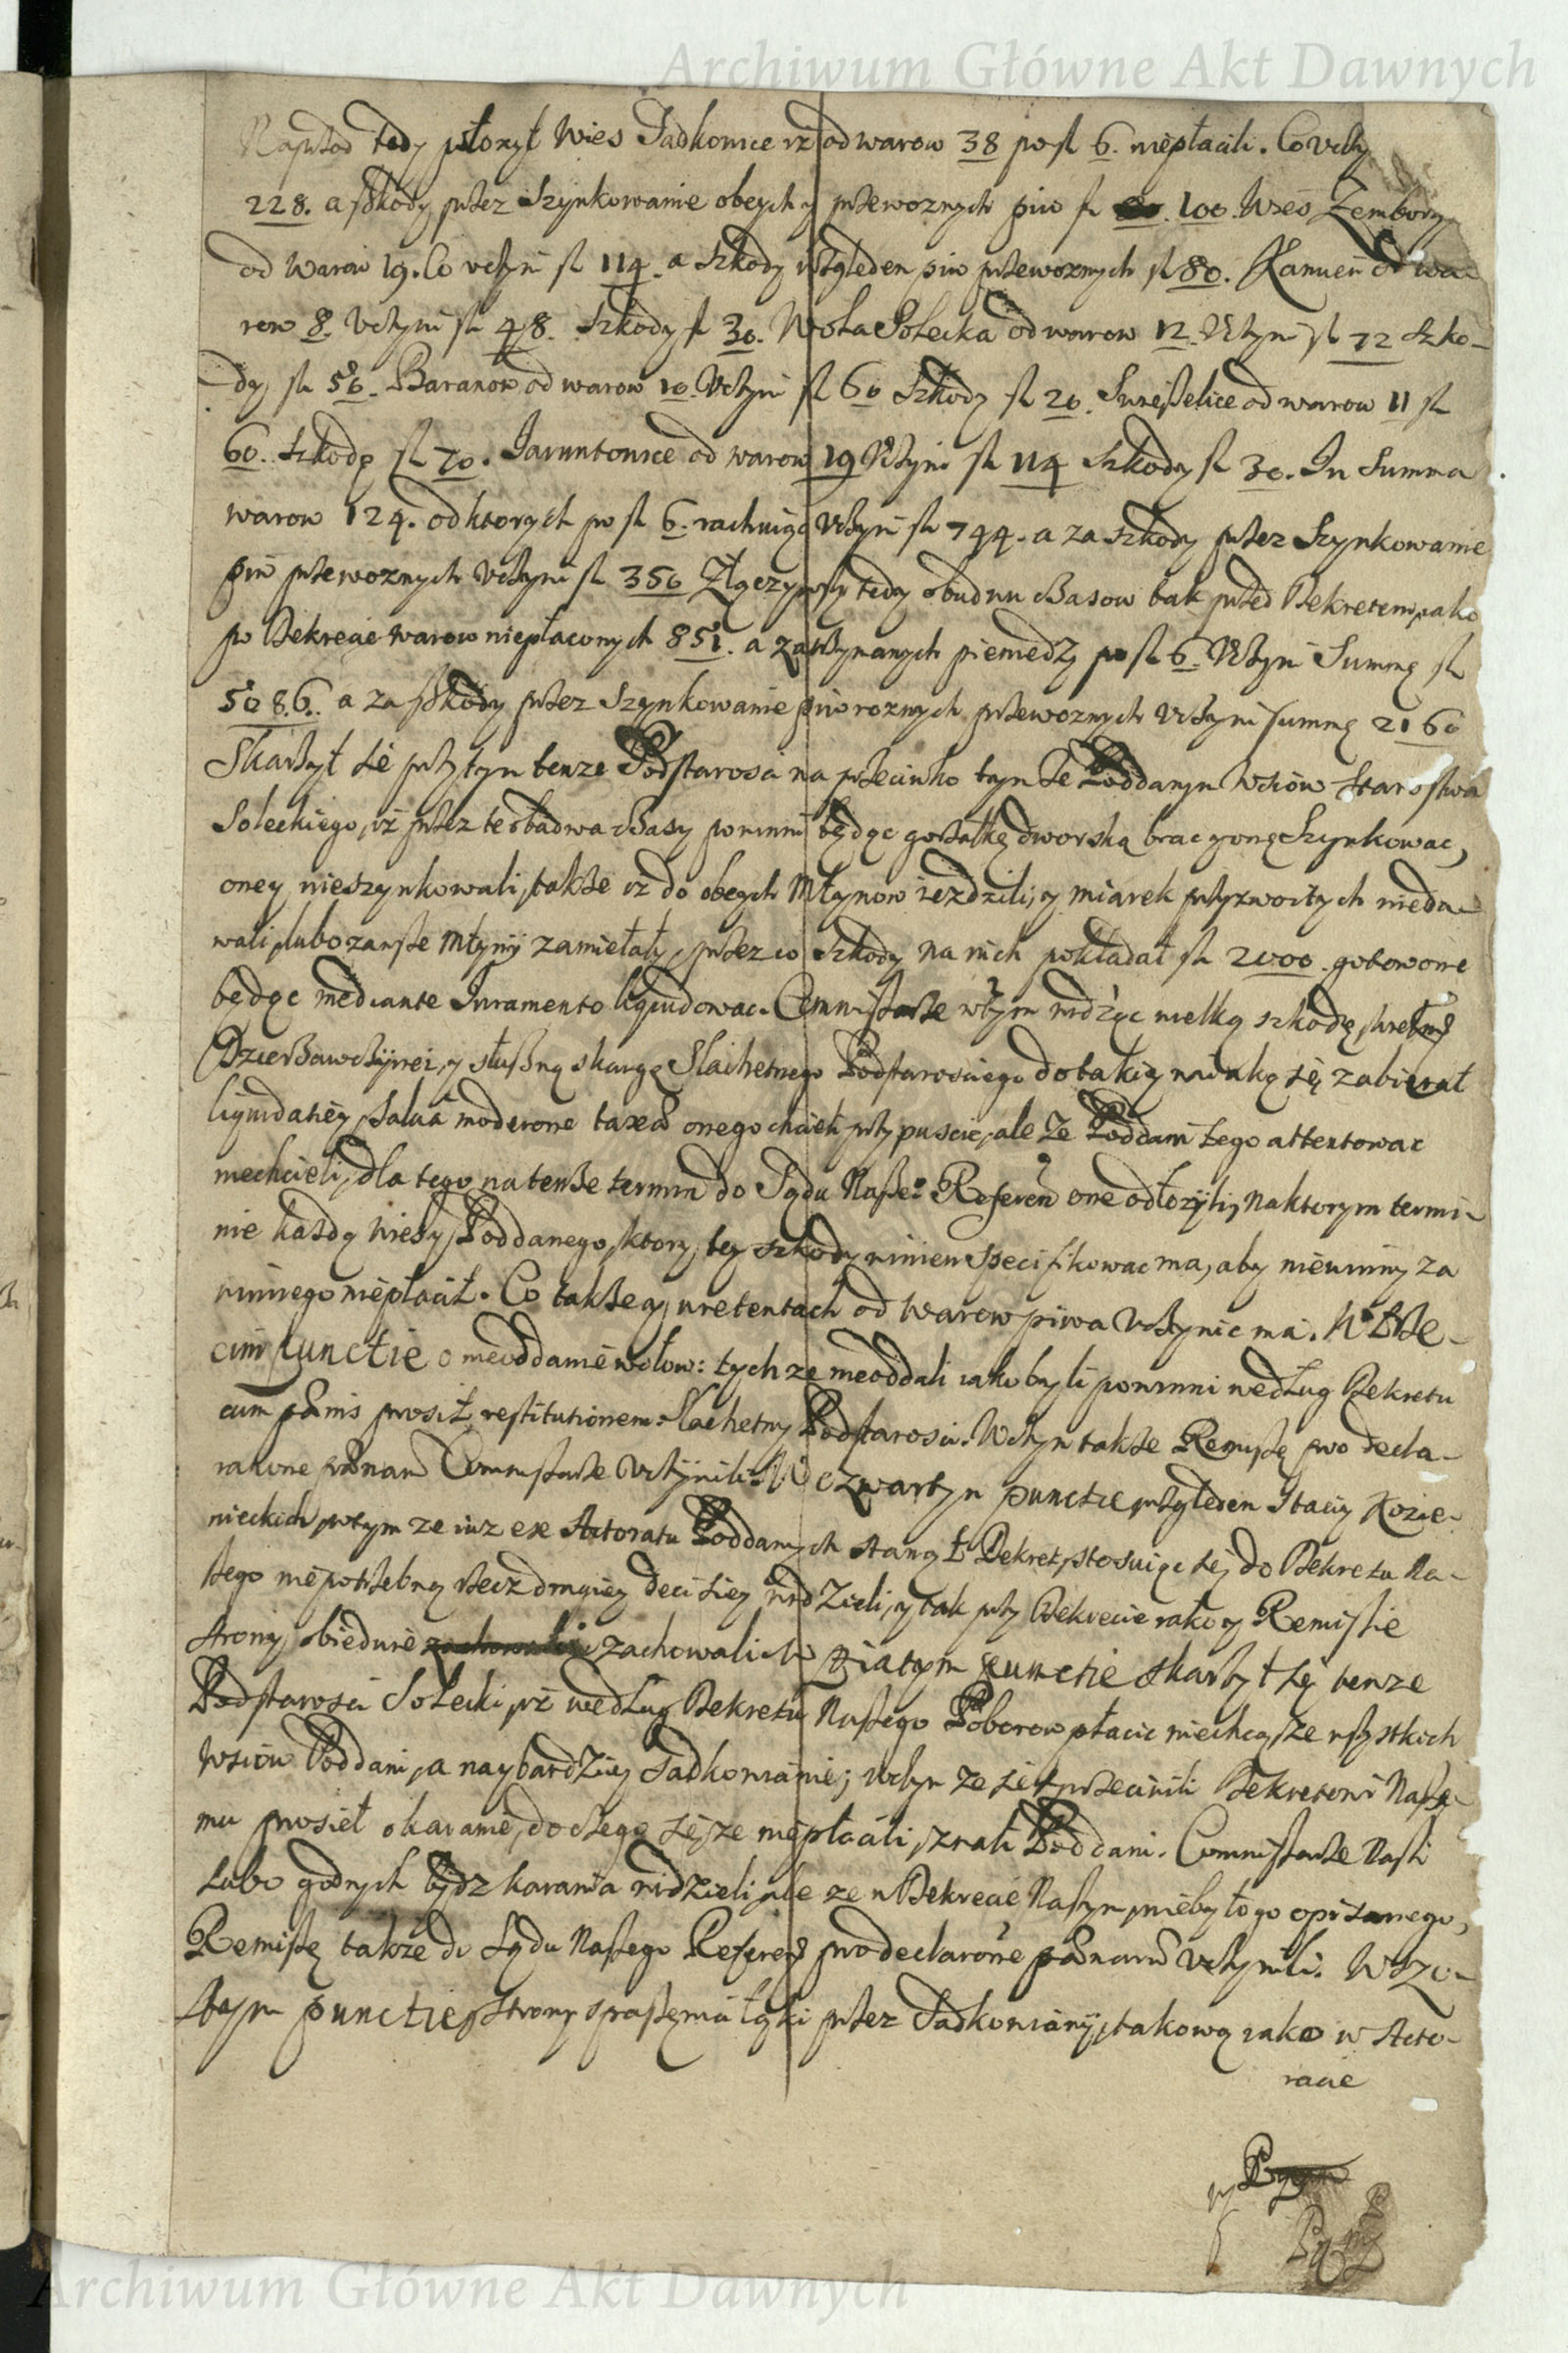 Archiwum Główne Akt Dawnych
Naprzod tedy położył Wies Sadkowice iż od warow 38 po fl 6. niepłacili. Co vczy
228. a szkody przez Szynkowanie obcych y przewoznych piw fl 100. Wies Zembory
od warow 19. Co vczyni fl 114. a szkody względem piw przewoznych fl 80. Kamień od wa-
row 8. Vczyni fl 48. szkody fl 30. Wola Solecka od warow 12. Vczyni fl 72 szko-
dy fl 50. Baranow od warow 10. Vczyni fl 60 szkody fl 20. Swieszelice od warow 11 fl
60. szkody fl 70. Jaruntowice od warow 19 Vczyni fl 114 szkody fl 30. In Summa
warow 124. od ktorych po fl 6. rachuiąc Vczyni fl 744. a za szkody przez Szynkowanie
piw przewoznych Vczyni fl 350 Złączywszy tedy obudwu Basow tak przed Dekretem, iako
po Dekrecie warow niepłaconych 851. a zatrzymanych pieniedzy po fl 6. Vczyni Summę fl
5086. a za szkody przez Szynkowanie piw roznych przewoznych Vczyni summę 2160
Skarżył sie przytym tenże Podstarosci na przeciwko tymże Poddanym Wsiow Starostwa
Soleckiego, iż przez te obadwa Basy powinni będąc gorzałkę dworską brac y onę Szynkowac,
oney nieszynkowali, także iż do obcych Młynow iezdzili, y miarek przyzwoitych nieda-
wali, lubo zawsze Młyny zamiełały, przez co szkody na nich pokładał fl 2000. gotow one
będąc mediante Iuramento liquidowac. Commissarze w tym widząc wielką szkodę
Dzierżawczyney, y słuszną skargę Slachetnego Podstarosciego do takiey na iaką się zabierał
liquidatiey, salva moderone taxae onego chcieli przypuscic, ale że Poddani tego attentowac
niechcieli, dla tego na tenże termin do Sądu Naszeo Referen one odłożyli, na ktorym termi-
nie każdy wiesy Poddanego, ktory tey szkody winien specifikowac ma, aby niewinny za
winnego niepłacił. Co także y wretentach od warow piwa Vczynic ma. W trze-
cim Punctie o nieoddanie wołow: tych że nieoddali iako byli powinni według Dekretu
cum paenis prosił restitutionem Slachetny Podstarosci. W tym także Remissę pro decla-
ratione paenarum Commissarze Vczynili. W czwartym punctie względem Stacij Kozie-
nieckich, w tym że iuż ex Actoratu Poddanych stanął Dekret, stosuiąc sie, do Dekretu Na-
szego niepotrzebną rzecz drugiey decisiey widzieli, y tak przy Dekrecie iako y Remissie
strony obiedwie zachowali. W Piątym punctie skarżył sie tenże
Podstarosci Solecki, iż według Dekretu Naszego Poborow płacic niechcą, ze wszystkich
Wsiow Poddani, a naybardziey Sadkowianie; w tym że sie sprzeciwili Dekretowi Nasze-
mu prosieł o karanie, do czego się, że niepłacili, znali Poddani. Commissarze Nasi
Lubo godnych bydz karania widzieli, ale ze w Dekrecie Naszym niebyło go opisanego,
Remissę także do Sądu Naszego Referen pro declarone paenarum Vczynili. W Szo-
stym punctie, strony spasienia łąki przez Sadkowiany, takową iako w Acto-
racie
Archiwum Główne Akt Dawnych